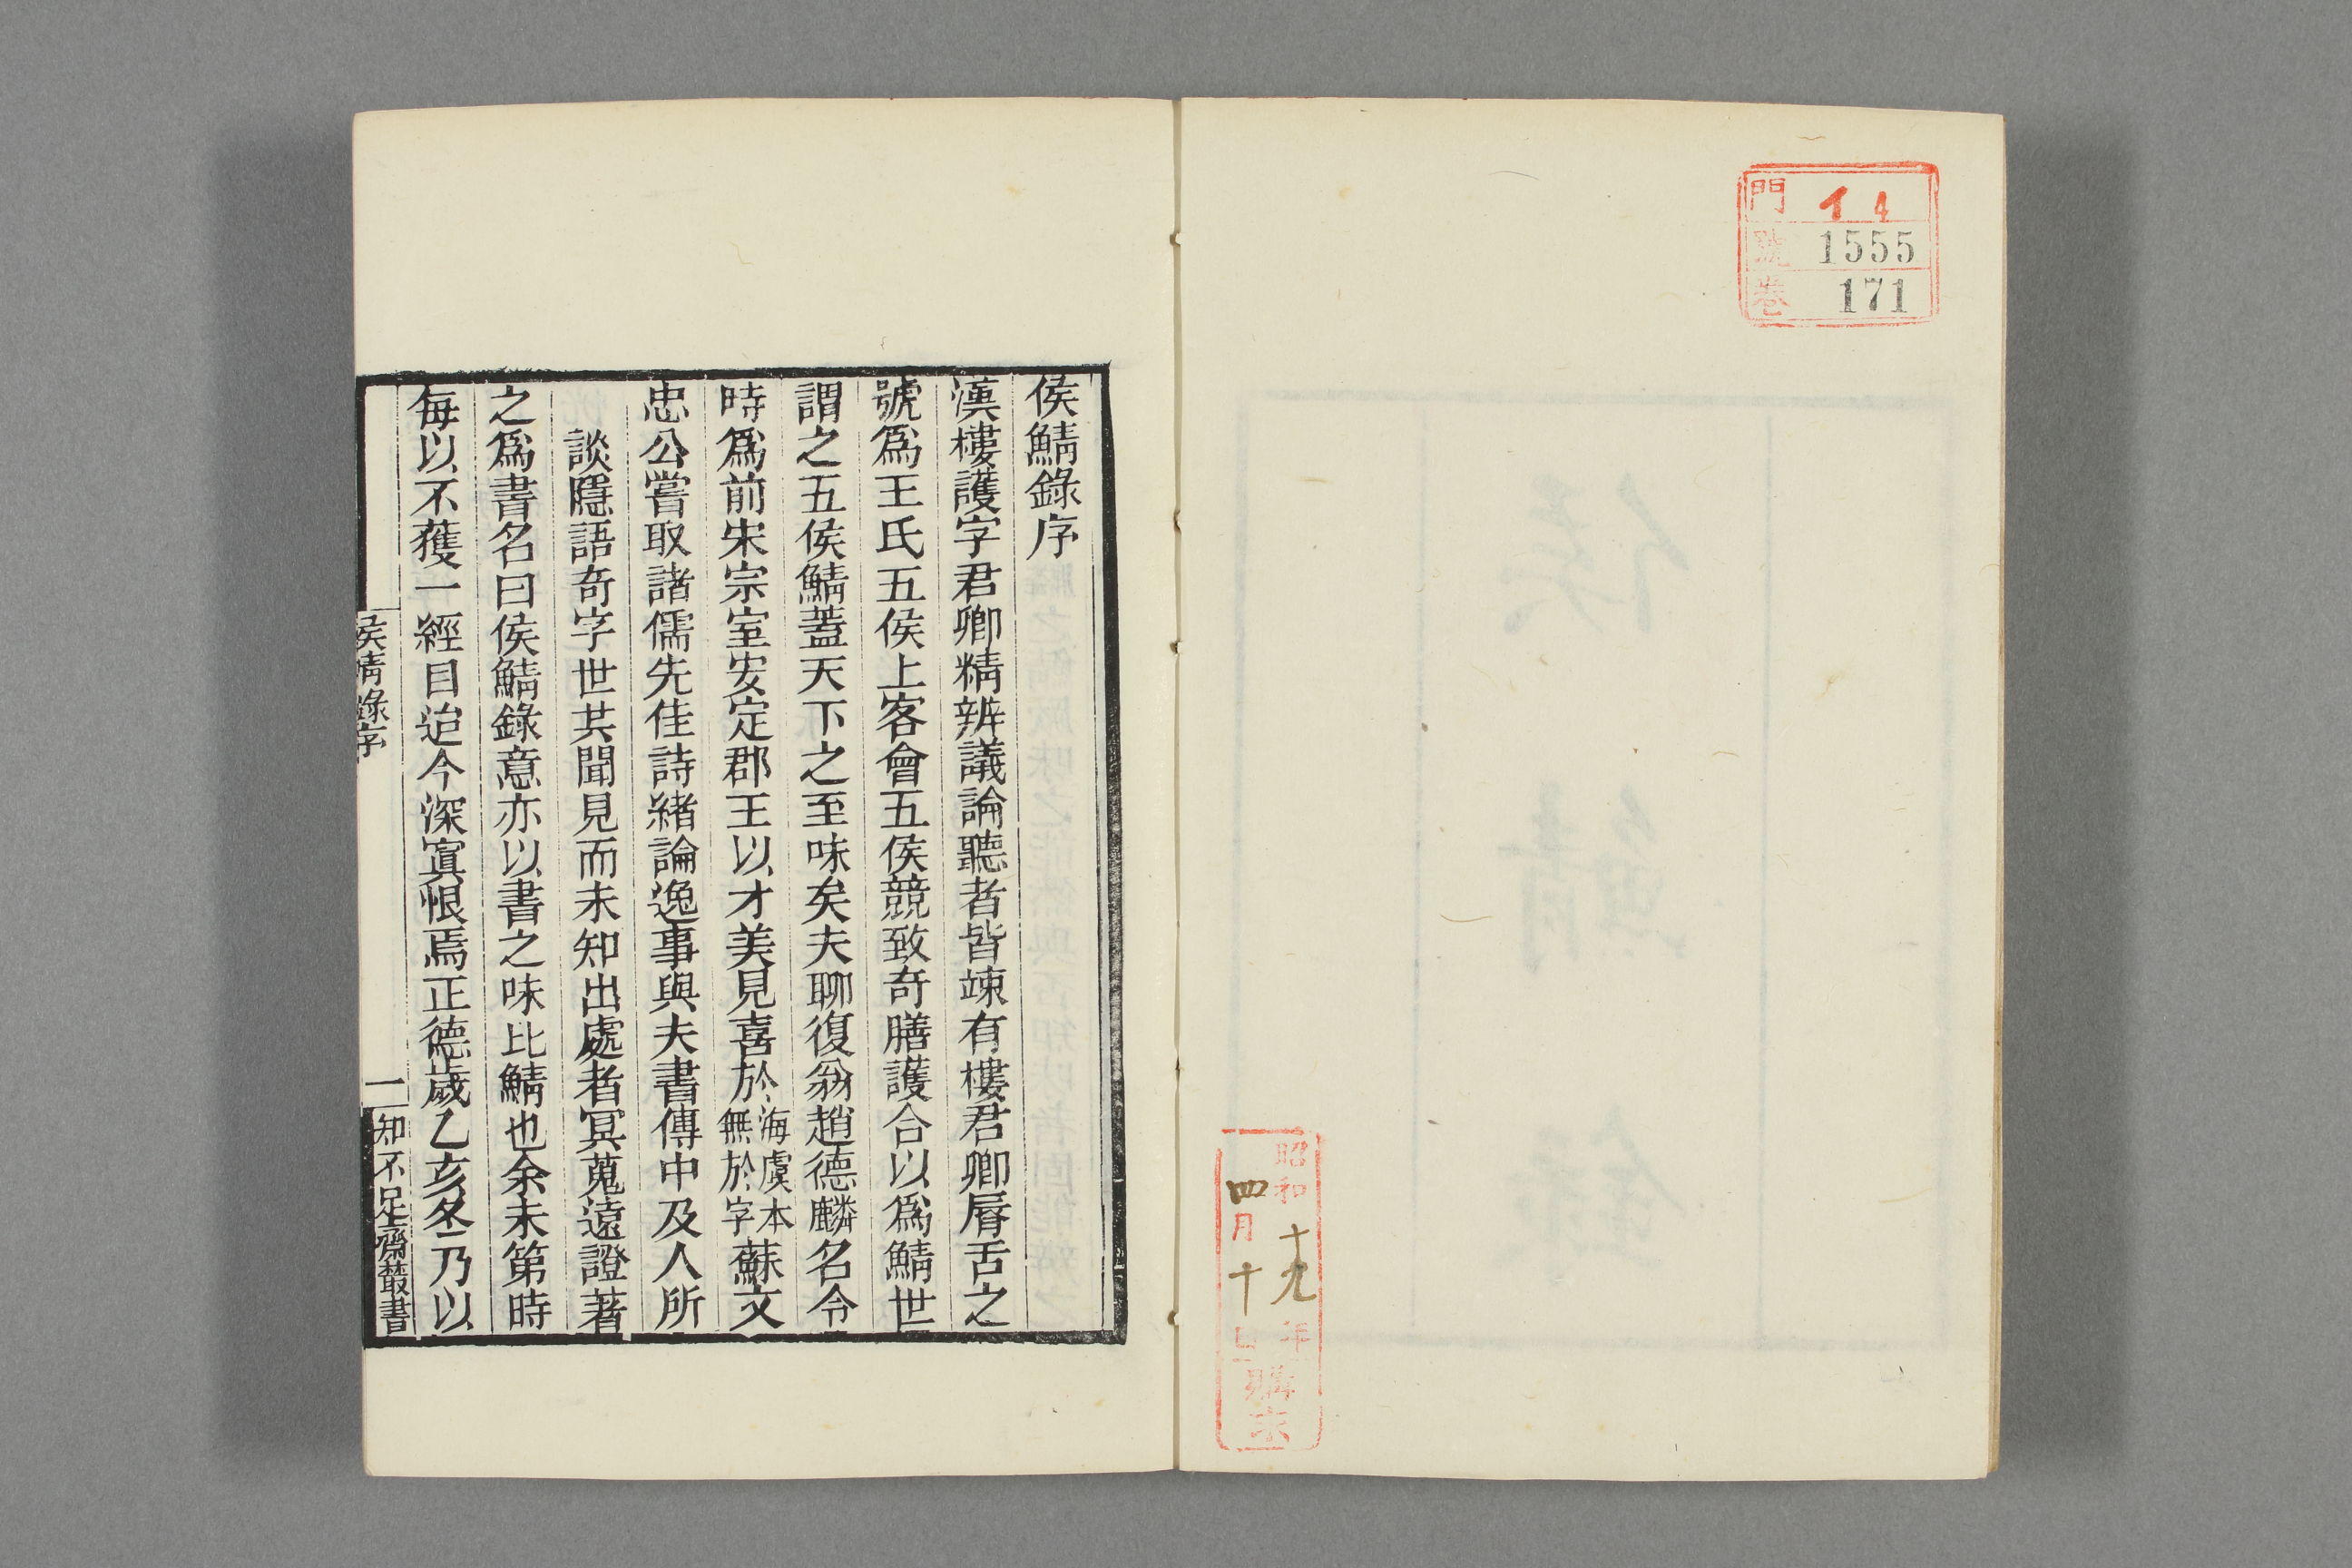 門 イ4
號 1555
卷 171
昭和十九年
四月十日
購求
侯鯖錄序
漢樓護字君卿精辨議論聽者皆竦有樓君卿脣舌之
號爲王氏五侯上客會五侯競致奇膳護合以爲鯖世
謂之五侯鯖蓋天下之至味矣夫聊復翁趙德麟名令
時爲前宋宗室安定郡王以才美見喜於海虞本無於字蘇文
忠公嘗取諸儒先佳詩緖論逸事與夫書傳中及人所
談隱語奇字世共聞見而未知出處者冥蒐遠證著
之爲書名曰侯鯖錄意亦以書之味比鯖也余未第時
每以不獲一經目迨今深寘恨焉正德歲乙亥冬乃以
侯鯖錄序
一
知不足齋叢書